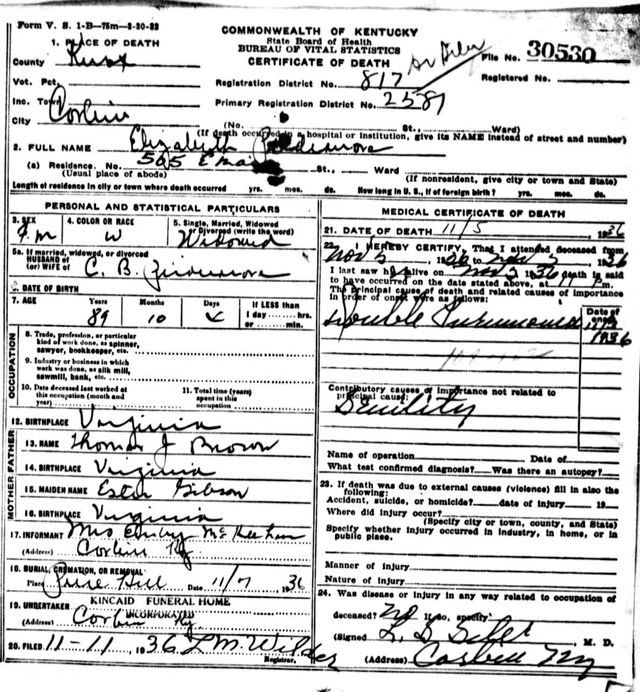 Form V. S. 1-B-75m-3-30-33
COMMONWEALTH OF KENTUCKY
State Board of Health
BUREAU OF VITAL STATISTICS
CERTIFICATE OF DEATH
File No. 30530
1. PLACE OF DEATH
County Knox
Registration District No. 817
Registered No.
Vot. Pct.
Inc. Town
Primary Registration District No. 2587
City Corbin
(No. St., Ward)
(If death occurred in a hospital or institution, give its NAME instead of street and number)
2. FULL NAME Elizabeth
(a) Residence. No. 505 E Main St., Ward
(Usual place of abode) (If nonresident, give city or town and State)
Length of residence in city or town where death occurred yrs. mos. ds. How long in U. S., if of foreign birth? yrs. mos. ds.
PERSONAL AND STATISTICAL PARTICULARS
3. SEX 4. COLOR OR RACE 5. Single, Married, Widowed or Divorced (write the word)
W Widowed
5a. If married, widowed, or divorced
HUSBAND of
(or) WIFE of C. B.
6. DATE OF BIRTH
7. AGE Years Months Days If LESS than
1 day hrs.
or min.
89 10
OCCUPATION
8. Trade, profession, or particular
kind of work done, as spinner,
sawyer, bookkeeper, etc.
9. Industry or business in which
work was done, as silk mill,
sawmill, bank, etc.
10. Date deceased last worked at
this occupation (month and
year)
11. Total time (years)
spent in this
occupation
12. BIRTHPLACE Virginia
FATHER
13. NAME Thomas J Brown
14. BIRTHPLACE Virginia
MOTHER
15. MAIDEN NAME Ester Gibson
16. BIRTHPLACE Virginia
17. INFORMANT Mrs
(Address) Corbin Ky
18. BURIAL, CREMATION, OR REMOVAL
Place Pine Hill Date 11/7 1936
19. UNDERTAKER KINCAID FUNERAL HOME
INCORPORATED
(Address) Corbin Ky
20. FILED 11-11, 1936 L M Wilder
Registrar.
MEDICAL CERTIFICATE OF DEATH
21. DATE OF DEATH 11/5, 1936
22. I HEREBY CERTIFY, That I attended deceased from
Nov 2, to Nov 1936
I last saw h alive on Nov 5 1936 death is said
to have occurred on the date stated above, at m.
The principal cause of death and related causes of importance
in order of onset were as follows:
Date of
onset
Double Pneumonia
1936
Contributory causes of importance not related to
principal cause:
Senility
Name of operation Date of
What test confirmed diagnosis? Was there an autopsy?
23. If death was due to external causes (violence) fill in also the
following:
Accident, suicide, or homicide? date of injury 19
Where did injury occur?
(Specify city or town, county, and State)
Specify whether injury occurred in industry, in home, or in
public place.
Manner of injury
Nature of injury
24. Was disease or injury in any way related to occupation of
deceased? no If so, specify
(Signed M. D.
(Address) Corbin Ky